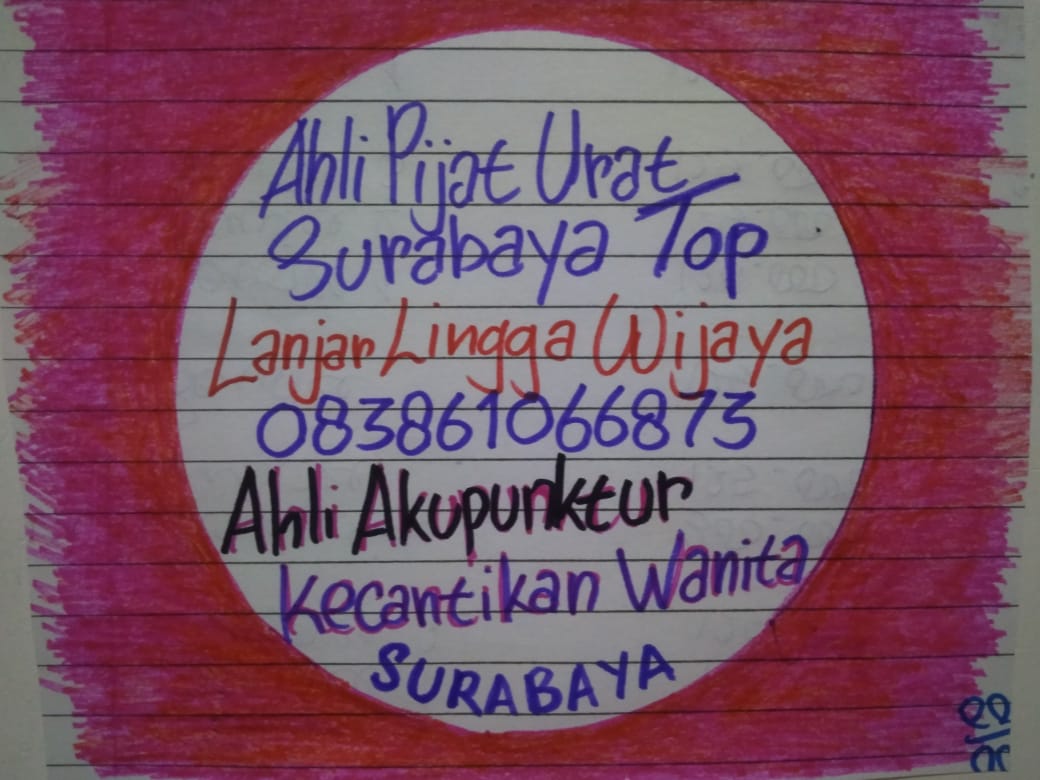 Ahli Pijat Urat
Surabaya Top
Lanjar Lingga Wijaya
083861066873
Ahli Akupunktur
Kecantikan Wanita
SURABAYA